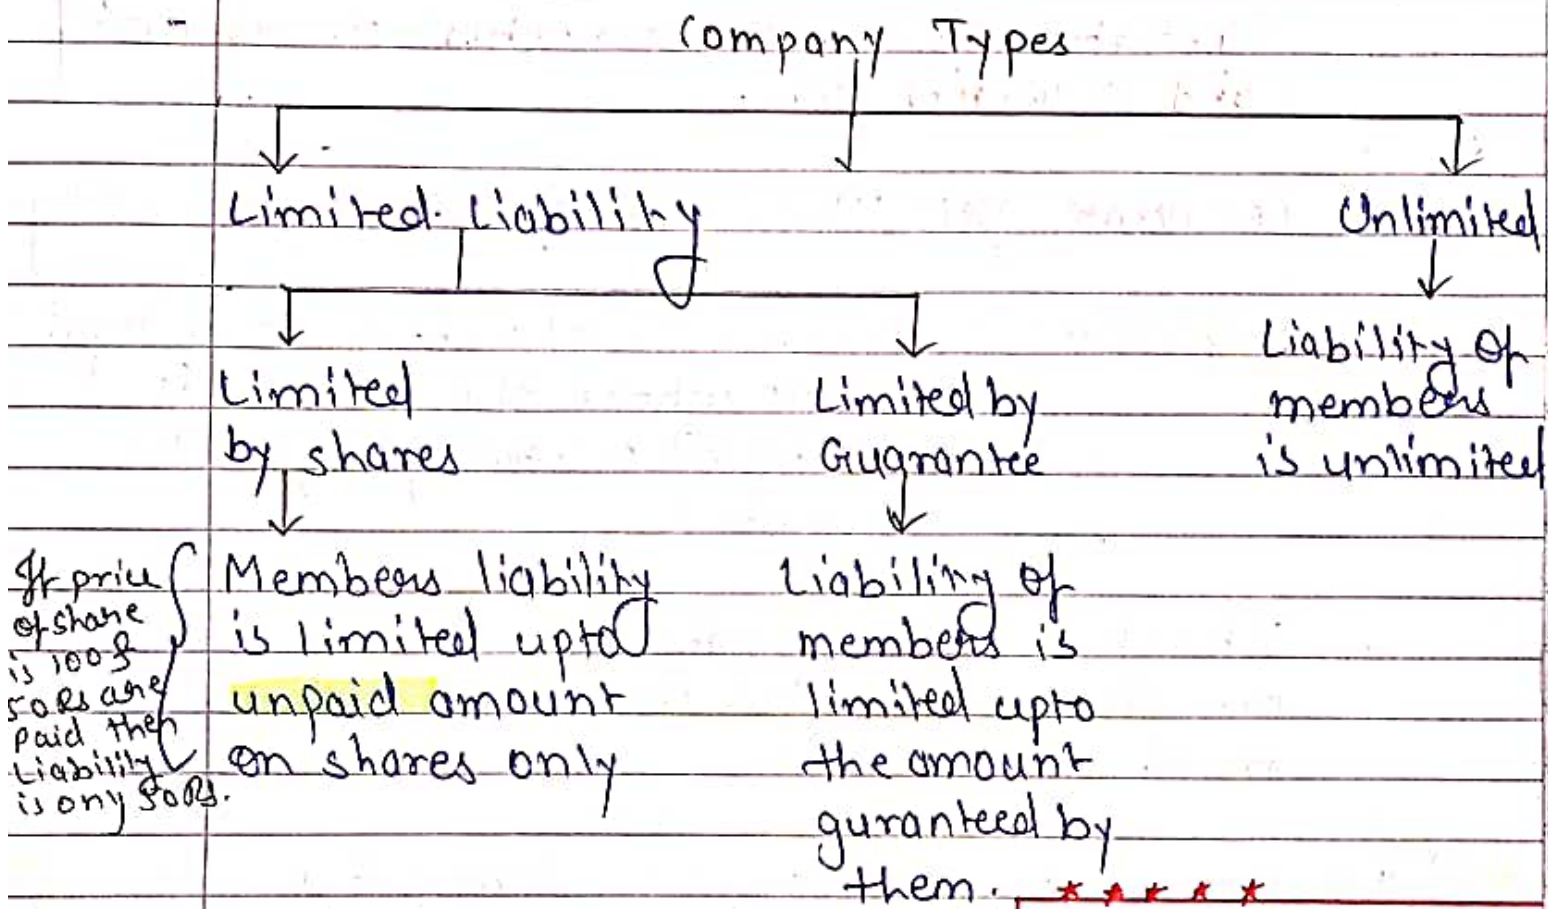 Company Types
Limited Liability
Unlimited
Limited
by shares
Limited by
Guarantee
Liability of
members
is unlimited
If price
of share
is 100 &
50Rs are
paid then
Liability
is ony 50Rs.
Members liability
is limited upto
unpaid amount
on shares only
Liability of
members is
limited upto
the amount
guranteed by
them.